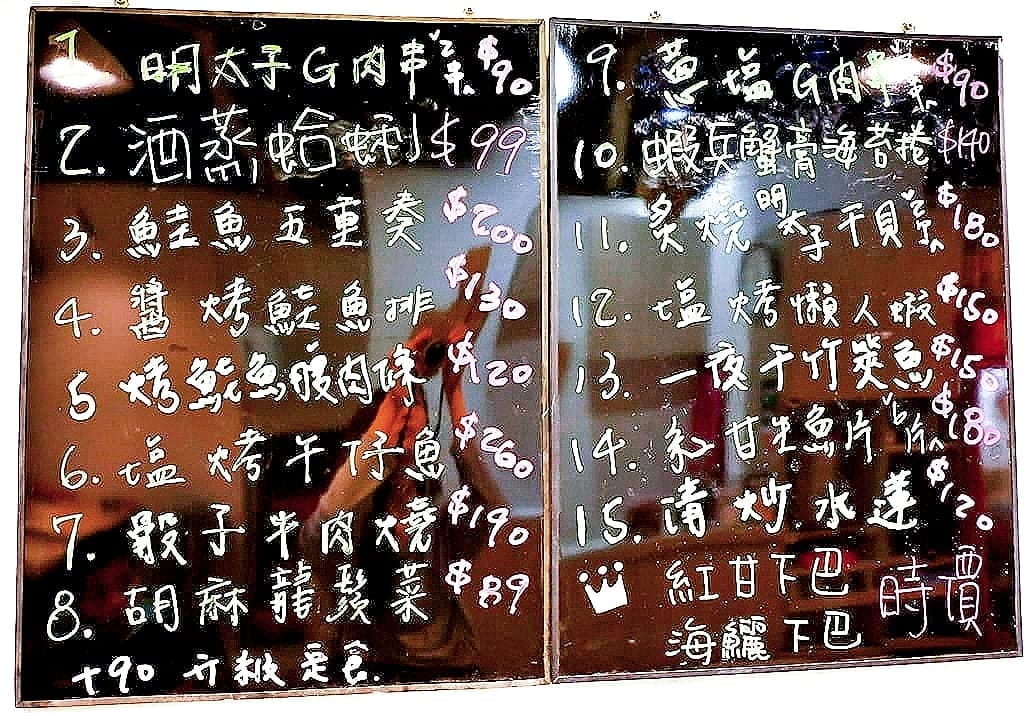 1 明太子G肉串 2串 $90
2. 酒蒸蛤蜊 $99
3. 鮭魚五重奏 $200
4. 醬烤鮭魚排 $130
5 烤鮭魚腹肉條 $120
6. 塩烤午仔魚 $260
7. 骰子牛肉燒 $190
8. 胡麻龍鬚菜 $89
+90 升級定食
9. 蔥塩G肉串 $90
10. 蝦兵蟹膏海苔捲 $140
11. 炙燒明太子干貝 $180
12. 塩烤懶人蝦 $150
13. 一夜干竹筴魚 $150
14. 紅甘生魚片 6片 $180
15. 清炒水蓮 $120
紅甘下巴 時價
海鱺下巴